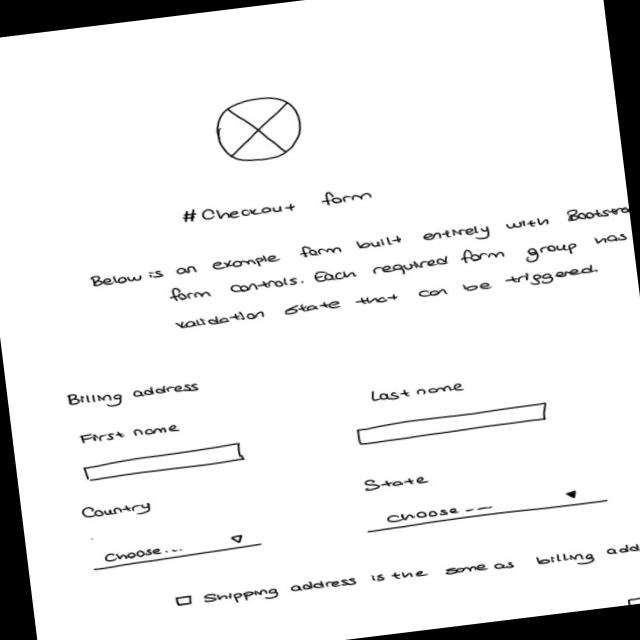 # Checkout form
Below is an example form built entirely with Bootstra
form controls. Each required form group has
validation state that can be triggered.
Billing address
First name
Last name
Country
State
Choose...
Choose --
Shipping address is the same as billing add